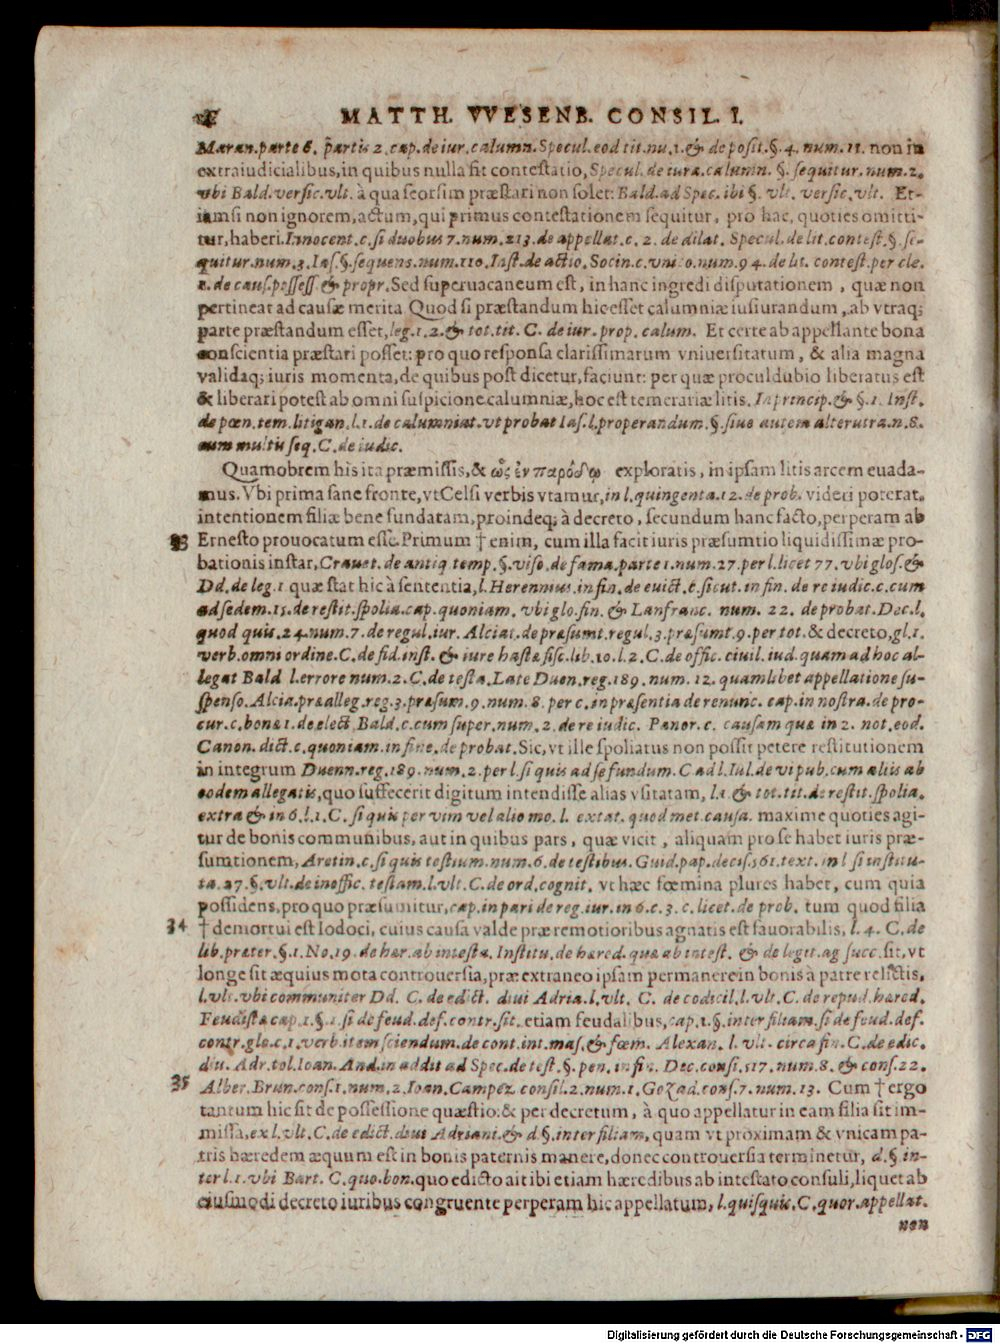 MATTH. VVESENB. CONSIL. I.
Maran. parte 6. partis 2. cap. de iur. calumn. Specul. eod tit. nu. 1. & de posit. §. 4. num. 11. non in
extraiudicialibus, in quibus nulla fit contestatio, Specul. de iura. calumn. §. sequitur. num. 2.
vbi Bald. versic. vlt. à qua seorsim præstari non solet: Bald. ad Spec. ibi §. vlt. versic. vlt. Et-
iamsi non ignorem, actum, qui primus contestationem sequitur, pro hac, quoties omitti-
tur, haberi. Innocent. c. si duobus 7. num. 213. de appellat. c. 2. de dilat. Specul. de lit. contest. §. se-
quitur. num. 3. Ias. §. sequens. num. 110. Inst. de actio. Socin. c. vnico. num. 94. de lit. contest. per cle.
1. de caus. possess & propr. Sed superuacaneum est, in hanc ingredi disputationem, quæ non
pertineat ad causæ merita Quod si præstandum hic esset calumniæ iusiurandum, ab vtraq;
parte præstandum esset, leg. 1. 2. & tot. tit. C. de iur. prop. calum. Et certe ab appellante bona
conscientia præstari posset: pro quo responsa clarissimarum vniuersitatum, & alia magna
validaq; iuris momenta, de quibus post dicetur, faciunt: per quæ proculdubio liberatus est
& liberari potest ab omni suspicione calumniæ, hoc est temerariæ litis. In princip. & §. 1. Inst.
de pœn. tem. litigan. l. 1. de calumniat. vt probat Ias. l. properandum. §. siue autem alterutra. n. 8.
cum multis seq. C. de iudic.
Quamobrem his ita præmissis, & ὡς ἐν παρόδῳ exploratis, in ipsam litis arcem euada-
mus. Vbi prima sane fronte, vt Celsi verbis vtamur, in l. quingenta. 12. de prob. videri poterat.
intentionem filiæ bene fundatam, proindeq; à decreto, secundum hanc facto, perperam ab
33 Ernesto prouocatum esse. Primum † enim, cum illa facit iuris præsumtio liquidissimæ pro-
bationis instar, Crauet. de antiq. temp. §. viso. de fama. parte 1. num. 27. per l. licet 77. vbi glos. &
Dd. de leg. 1 quæ stat hic à sententia, l. Herennius. in fin. de euict. c. sicut. in fin. de re iudic. c. cum
ad sedem. 15. de restit. spolia. cap. quoniam. vbi glo. fin. & Lanfranc. num. 22. de probat. Dec. l.
quod quis. 24. num. 7. de regul. iur. Alciat. de præsumt. regul. 3. præsumt. 9. per tot. & decreto, gl. 1.
verb. omni ordine. C. de fid. inst. & iure hastæ fisc. lib. 10. l. 2. C. de offic. ciuil. iud. quam ad hoc al-
legat Bald l. errore num. 2. C. de testa. Late Duen. reg. 189. num. 12. quamlibet appellatione su-
spenso. Alcia. præalleg. reg. 3. præsum. 9. num. 8. per c. in præsentia de renunc. cap. in nostra. de pro-
cur. c. bonæ 1. de elect Bald. c. cum super. num. 2. de re iudic. Panor. c. causam quæ in 2. not. eod.
Canon. dict. c. quoniam. in fine. de probat. Sic, vt ille spoliatus non possit petere restitutionem
in integrum Duenn. reg. 189. num. 2. per l. si quis ad se fundum. C ad l. Iul. de vi pub. cum aliis ab
eodem allegatis, quo suffecerit digitum intendisse alias vsitatam, l. 1 & tot. tit. de restit. spolia.
extra & in 6. l. 1. C. si quis per vim vel alio mo. l. extat. quod met. causa. maxime quoties agi-
tur de bonis communibus, aut in quibus pars, quæ vicit, aliquam pro se habet iuris præ-
sumtionem, Aretin. c. si quis testium. num. 6. de testibus. Guid. pap. decis. 561. text. in l si institu-
ta. 27. §. vlt. de inoffic. testam. l. vlt. C. de ord. cognit. vt hæc fœmina plures habet, cum quia
possidens, pro quo præsumitur, cap. in pari de reg. iur. in 6. c. 3. c. licet. de prob. tum quod filia
34 † demortui est Iodoci, cuius causa valde præ remotioribus agnatis est fauorabilis, l. 4. C. de
lib. præter. §. 1. No. 19. de hær. ab intesta. Institu. de hæred. quæ ab intest. & de legit. ag succ. sit, vt
longe sit æquius mota controuersia, præ extraneo ipsam permanere in bonis à patre relictis,
l. vlt. vbi communiter Dd. C. de edict. diui Adria. l. vlt. C. de codicil. l. vlt. C. de repud. hæred.
Feudistæ cap. 1. §. 1. si de feud. def. contr. sit. etiam feudalibus, cap. 1. §. inter filiam. si de feud. def.
contr. glo. c. 1. verb. item sciendum. de cont. int. mas. & fœm. Alexan. l. vlt. circa fin. C. de edic.
diu. Adr. tol. Ioan. And. in addit ad Spec. de test. §. pen. in fin. Dec. consi. 517. num. 8. & cons. 22.
35 Alber. Brun. cons. 1. num. 2. Ioan. Campez consil. 2. num. 1. Gozad. cons. 7. num. 13. Cum † ergo
tantum hic sit de possessione quæstio: & per decretum, à quo appellatur in eam filia sit im-
missa, ex l. vlt. C. de edict. diui Adriani. & d. §. inter filiam, quam vt proximam & vnicam pa-
tris hæredem æquum est in bonis paternis manere, donec controuersia terminetur, d. § in-
ter l. 1. vbi Bart. C. quo. bon. quo edicto ait ibi etiam hæredibus ab intestato consuli, liquet ab
eiusmodi decreto iuribus congruente perperam hic appellatum, l. quisquis. C. quor. appellat.
non
Digitalisierung gefördert durch die Deutsche Forschungsgemeinschaft - DFG